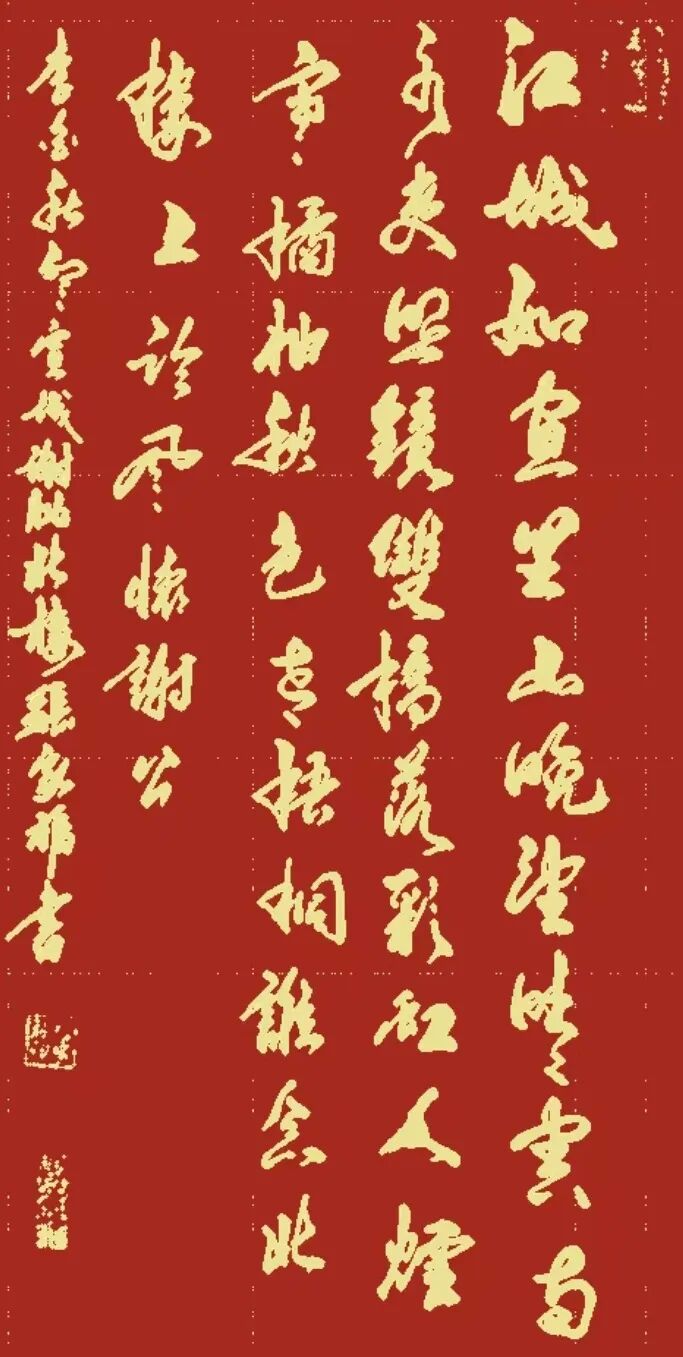 江城如画里山晚望晴空两
水夾明鏡雙橋落彩虹人煙
寒橘柚秋色老梧桐誰念北
樓上臨風懷謝公
李白秋登宣城謝朓北樓張書